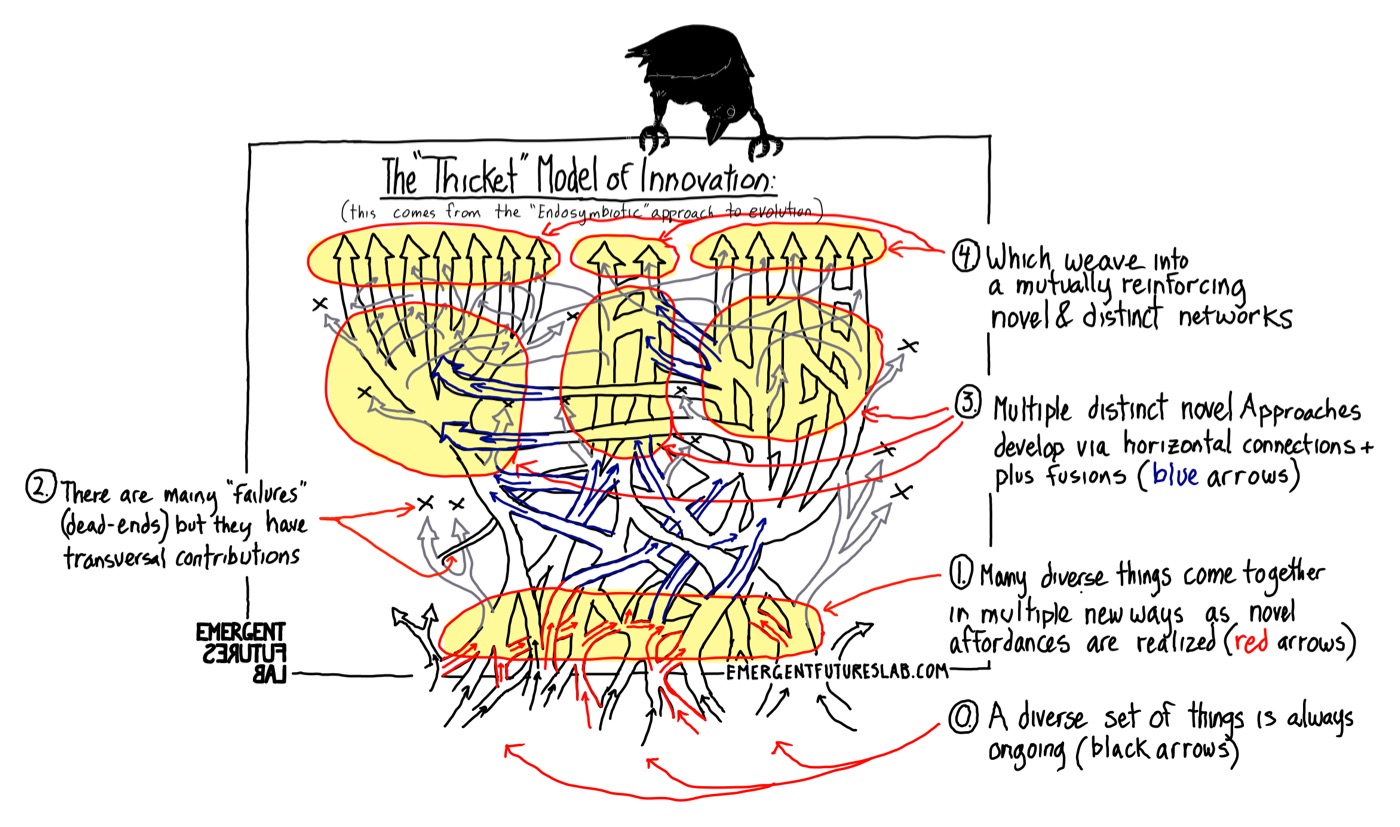 The "Thicket" Model of Innovation:
(this comes from the "Endosymbiotic" approach to evolution)
4. Which weave into
a mutually reinforcing
novel & distinct networks
3. Multiple distinct novel Approaches
develop via horizontal connections +
plus fusions (blue arrows)
2. There are mainy "failures"
(dead-ends) but they have
transversal contributions
1. Many diverse things come together
in multiple new ways as novel
affordances are realized (red arrows)
EMERGENT
FUTURES
LAB
EMERGENTFUTURESLAB.COM
0. A diverse set of things is always
ongoing (black arrows)